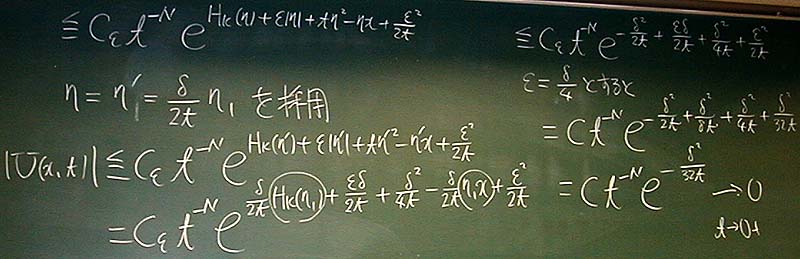 ≦ C_ε t^{-N} e^{H_K(η) + ε|η| + tη² - ηx + ε²/2t}
η = η' = δ/2t η₁ を採用
|U(x, t)| ≦ C_ε t^{-N} e^{H_K(η') + ε|η'| + tη'² - η'x + ε²/2t}
= C_ε t^{-N} e^{δ/2t (H_K(η₁)) + εδ/2t + δ²/4t - δ/2t (η₁, x) + ε²/2t}
≦ C_ε t^{-N} e^{-δ²/2t + εδ/2t + δ²/4t + ε²/2t}
ε = δ/4 とすると
= C t^{-N} e^{-δ²/2t + δ²/8t + δ²/4t + δ²/32t}
= C t^{-N} e^{-δ²/32t} → 0
t→0+